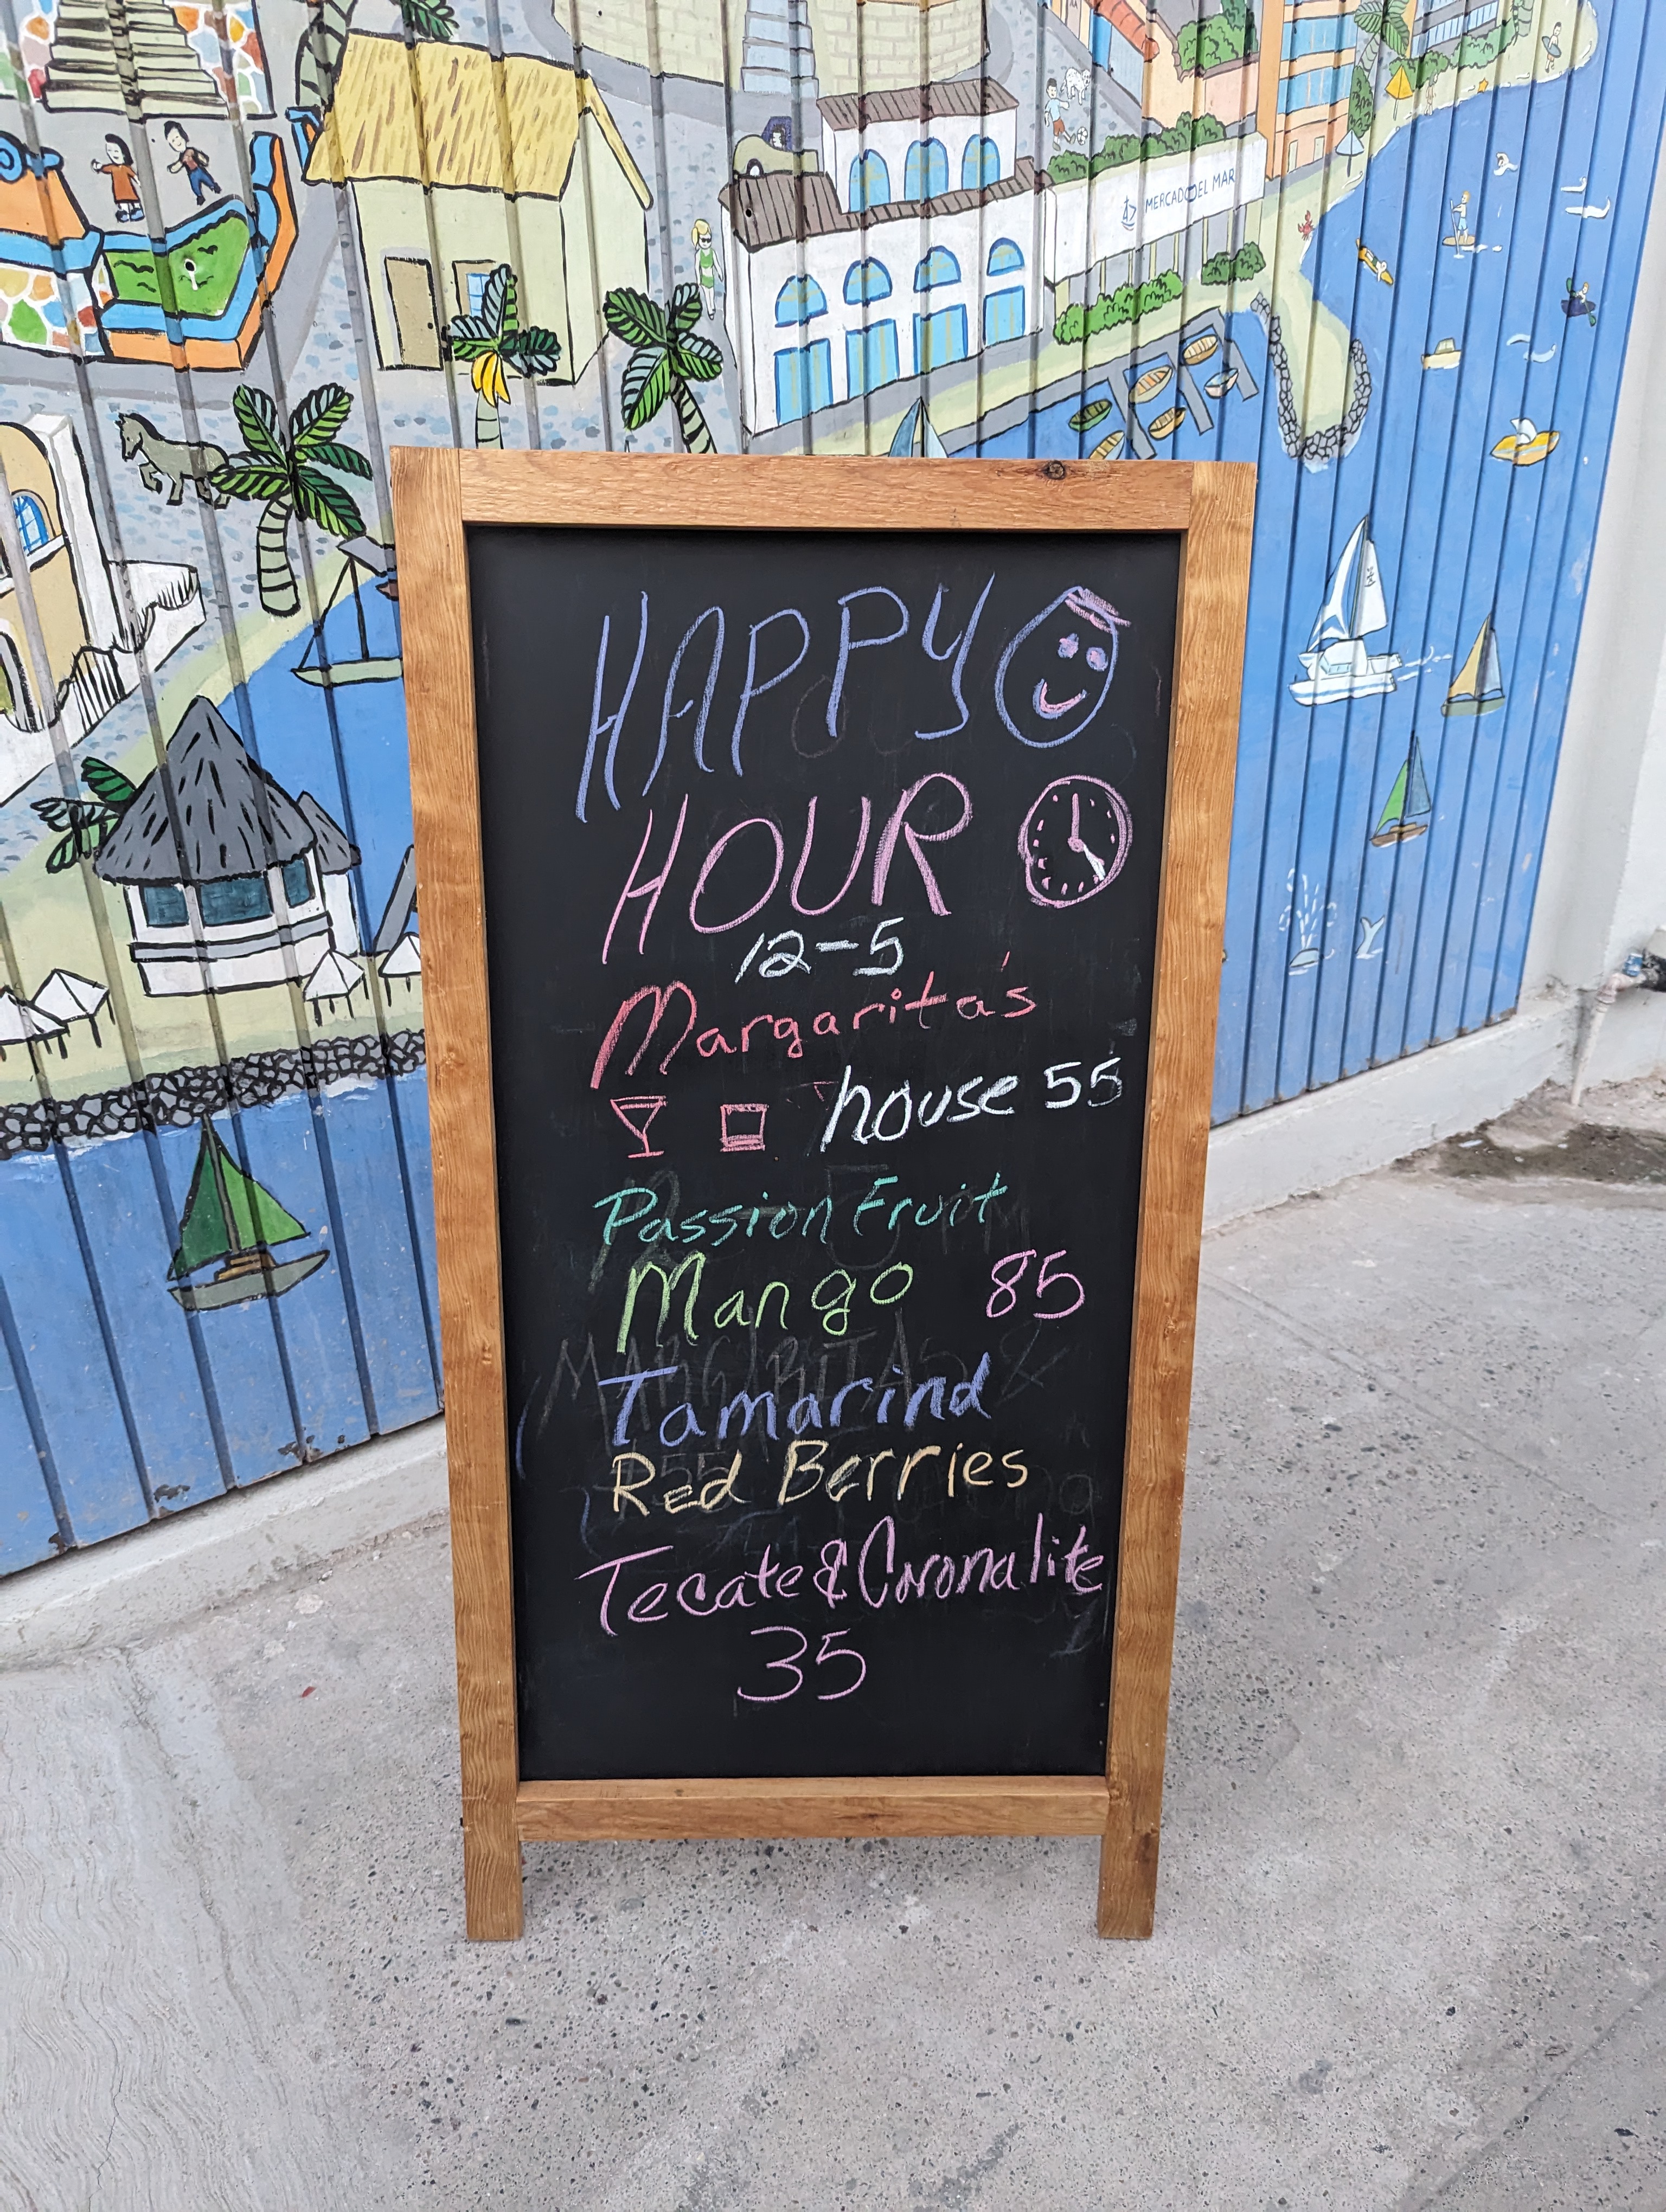 MERCADO DEL MAR
HAPPY
HOUR
12-5
Margarita's
house 55
Passion Fruit
Mango 85
Tamarind
Red Berries
Tecate & Corona lite
35
MARGARITAS &